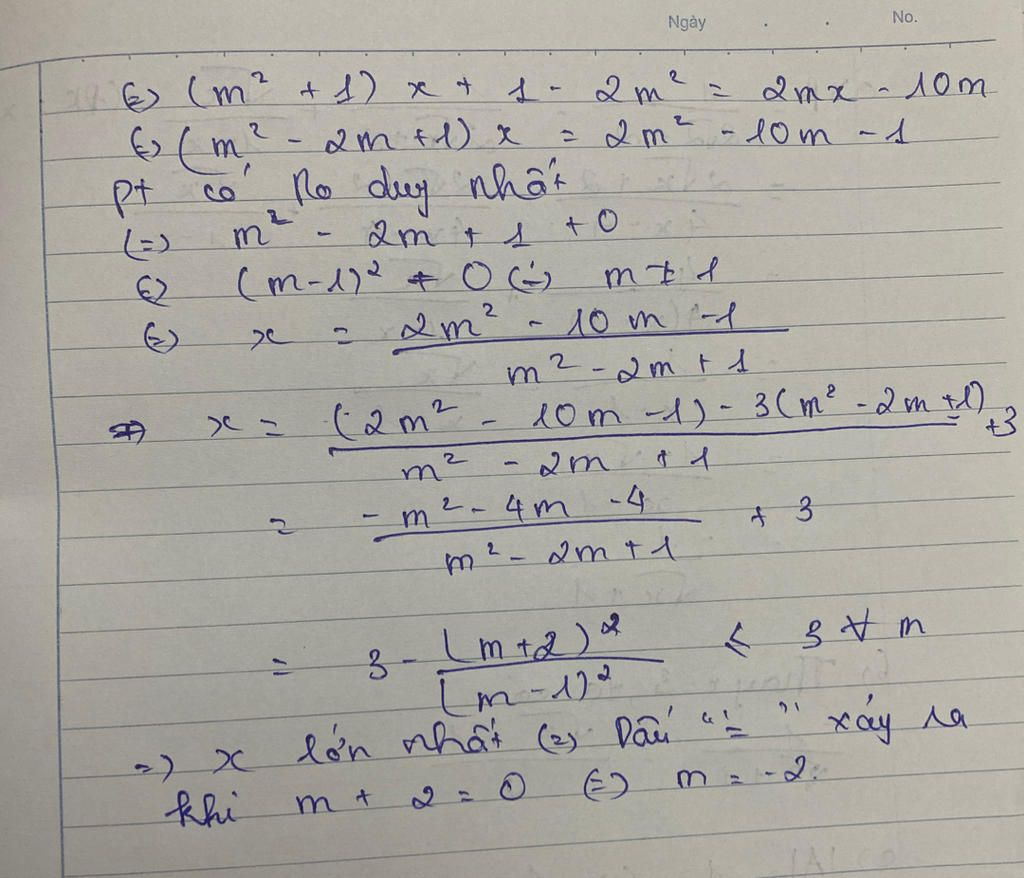 Ngày . . No.
⇔ (m² + 1) x + 1 - 2m² = 2mx - 10m
⇔ (m² - 2m + 1) x = 2m² - 10m - 1
pt có no duy nhất
(=) m² - 2m + 1 ≠ 0
⇔ (m-1)² ≠ 0 ⇔ m ≠ 1
⇔ x = (2m² - 10m - 1) / (m² - 2m + 1)
⇒ x = ((2m² - 10m - 1) - 3(m² - 2m + 1)) / (m² - 2m + 1) + 3
= (-m² - 4m - 4) / (m² - 2m + 1) + 3
= 3 - (m+2)² / (m-1)² ≤ 3 ∀ m
=) x lớn nhất (=) Dấu "=" xảy ra
khi m + 2 = 0 ⇔ m = -2.